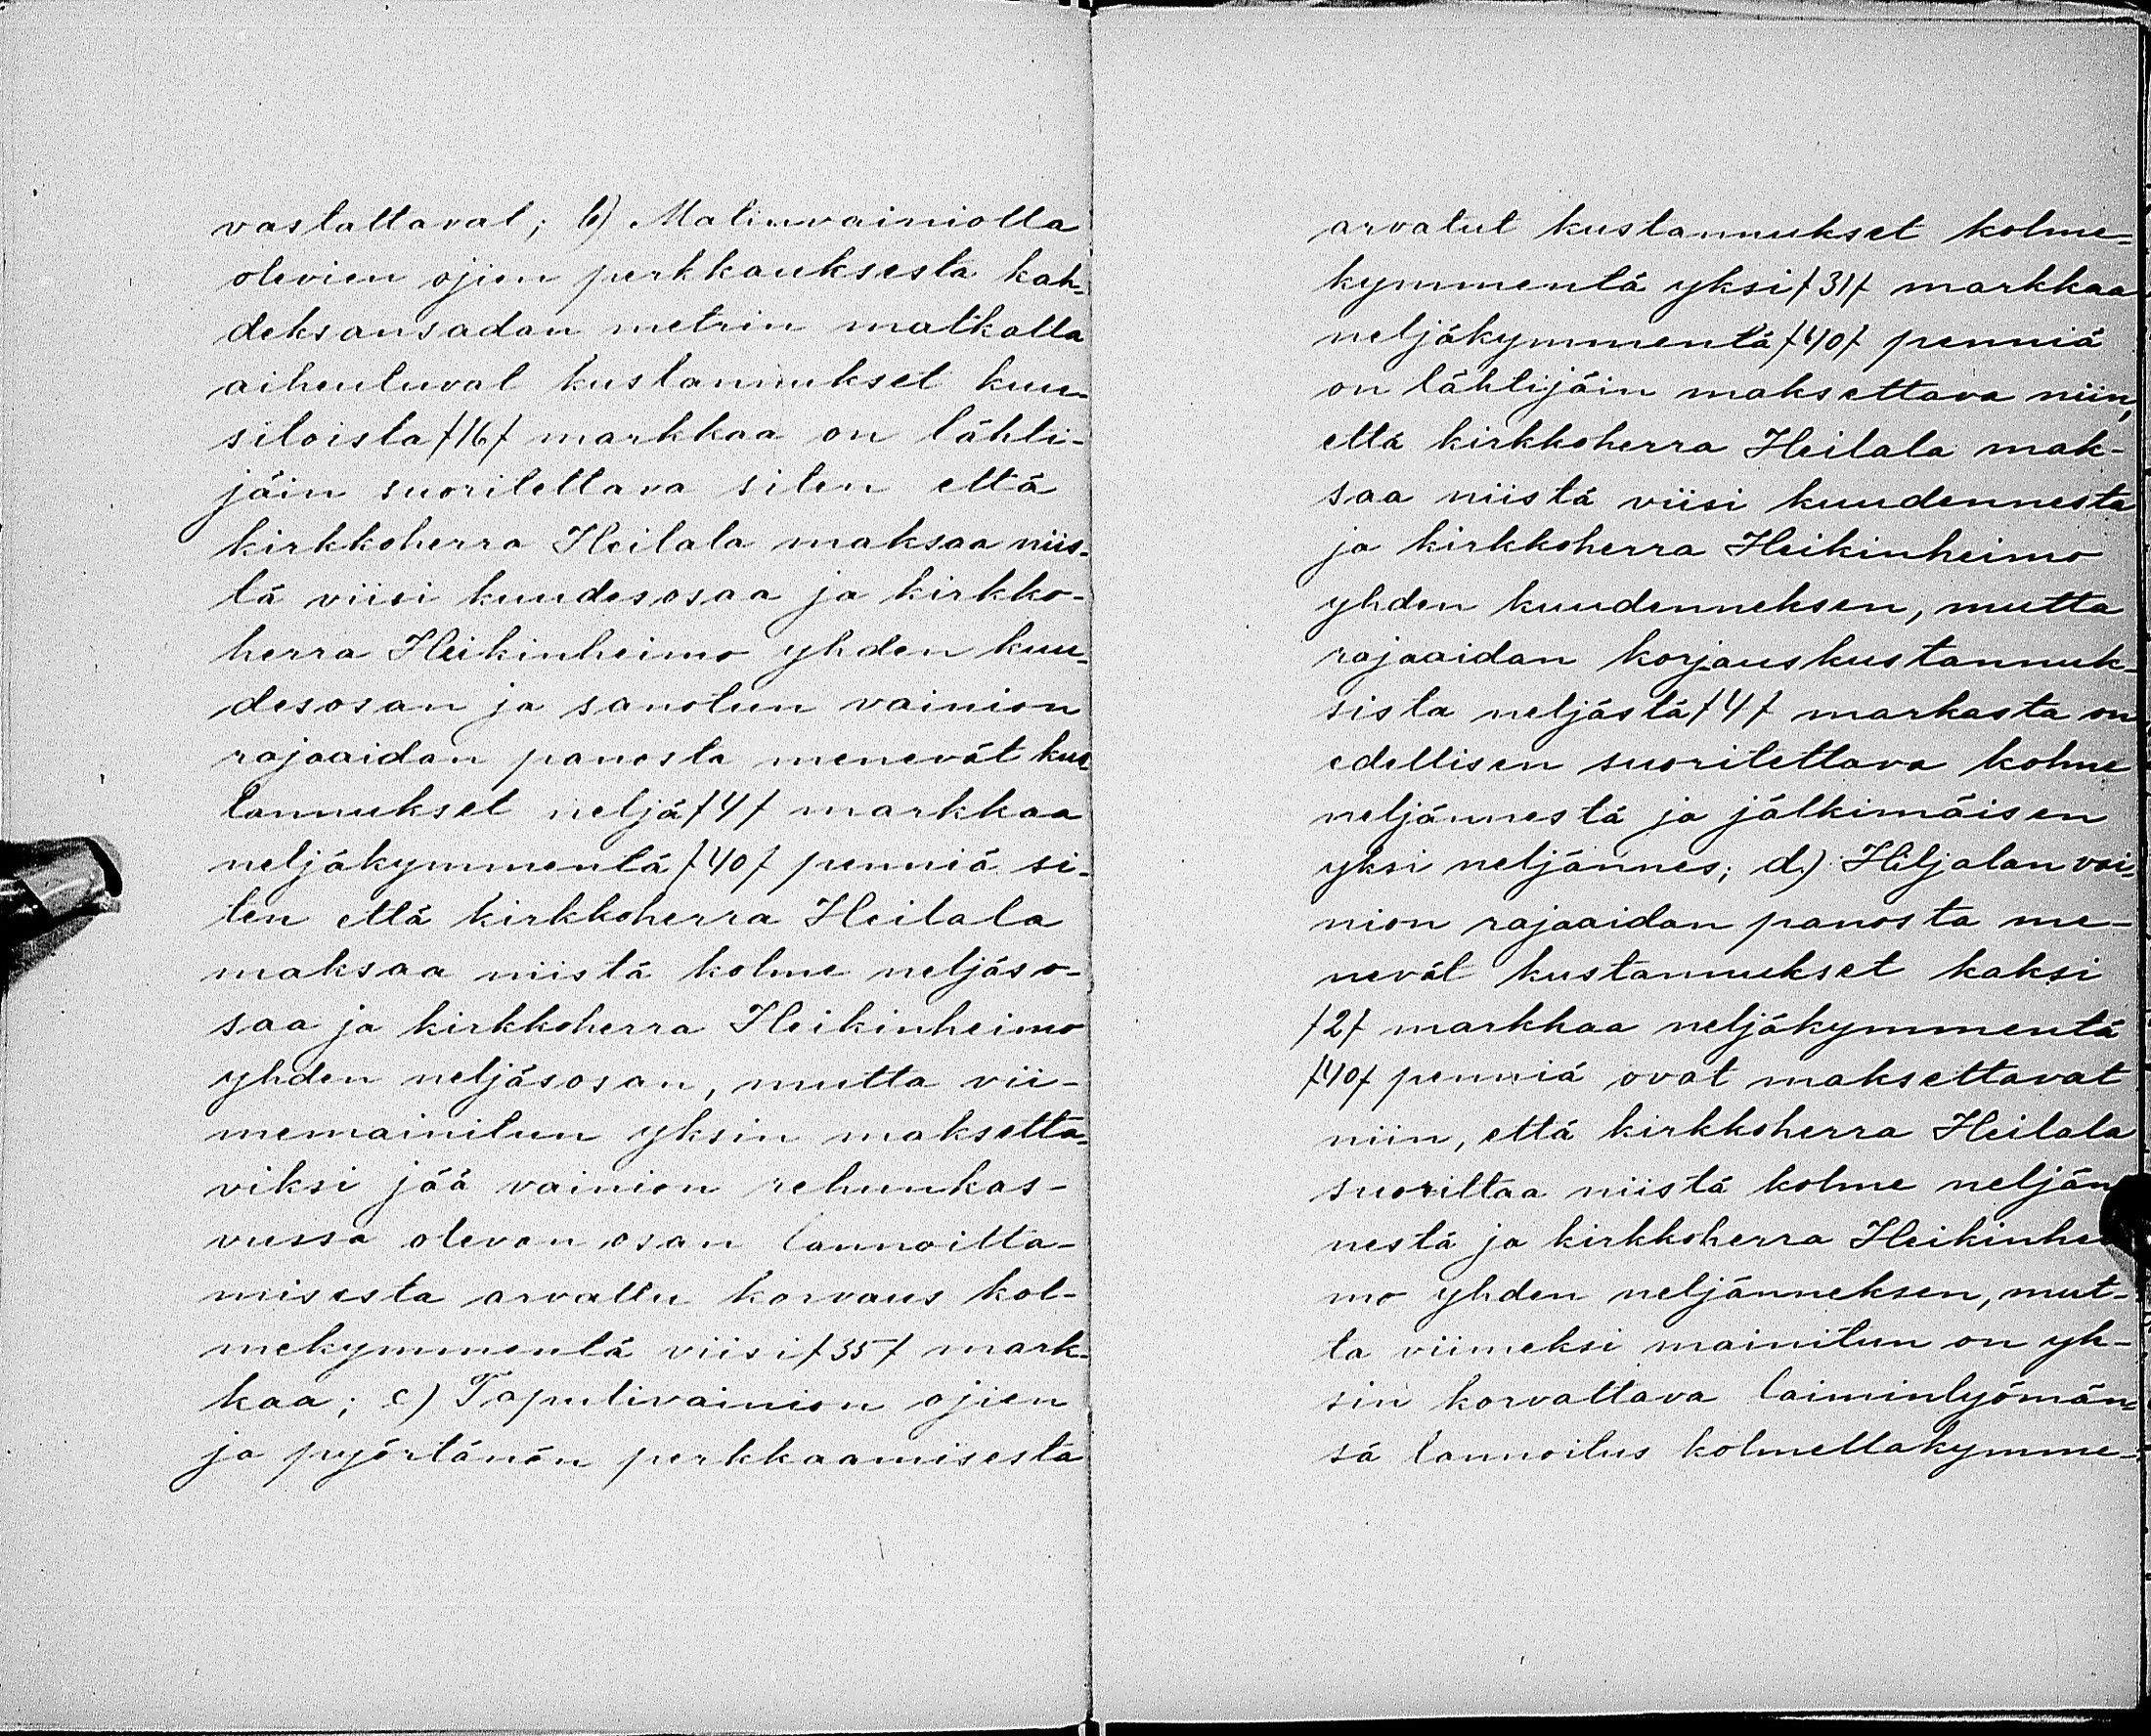 vastattavat; b) Matinvainiolla
olevien ojien perkkauksesta kah-
deksansadan metrin matkalla
aiheutuvat kustannukset kuu-
sitoista /16/ markkaa on lähti-
jäin suoritettava siten että
kirkkoherra Heilala maksaa niis-
tä viisi kuudesosaa ja kirkko-
herra Heikinheimo yhden kuu-
desosan ja sanotun vainion
rajaaidan panosta menevät kus-
tannukset neljä /4/ markkaa
neljäkymmentä /40/ penniä si-
ten että kirkkoherra Heilala
maksaa niistä kolme neljäso-
saa ja kirkkoherra Heikinheimo
yhden neljäsosan, mutta vii-
memainitun yksin maksetta-
viksi jää vainion rehunkas-
vussa olevan osan lannoitta-
misesta arvattu korvaus kol-
mekymmentä viisi /35/ mark-
kaa; c) Tapulivainion ojien
ja pyörtänön perkkaamisesta
arvatut kustannukset kolme-
kymmentä yksi /31/ markkaa
neljäkymmentä /40/ penniä
on lähtijäin maksettava niin,
että kirkkoherra Heilala mak-
saa niistä viisi kuudennesta
ja kirkkoherra Heikinheimo
yhden kuudenneksen, mutta
rajaaidan korjauskustannuk-
sista neljästä /4/ markasta on
edellisen suoritettava kolme
neljännestä ja jälkimäisen
yksi neljännes; d) Hiljalan vai-
nion rajaaidan panosta me-
nevät kustannukset kaksi
/2/ markkaa neljäkymmentä
/40/ penniä ovat maksettavat
niin, että kirkkoherra Heilala
suorittaa niistä kolme neljän
nestä ja kirkkoherra Heikinhei
mo yhden neljänneksen, mut-
ta viimeksi mainitun on yk-
sin korvattava laiminlyömän-
sä lannoitus kolmellakymme-